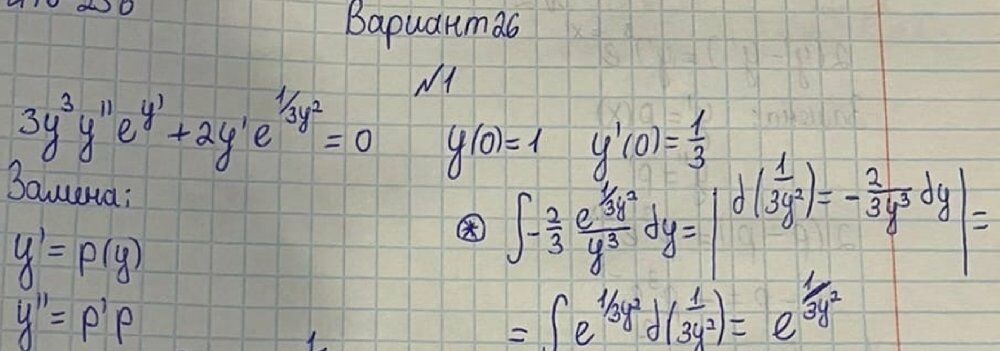 Вариант 26
№1
3y³y''e^{y'} + 2y'e^{1/3y²} = 0 y(0)=1 y'(0)=1/3
Замена:
⊛ ∫ -2/3 e^{1/3y²}/y³ dy = | d(1/3y²) = -2/3y³ dy | =
y' = p(y)
y'' = p'p
= ∫ e^{1/3y²} d(1/3y²) = e^{1/3y²}